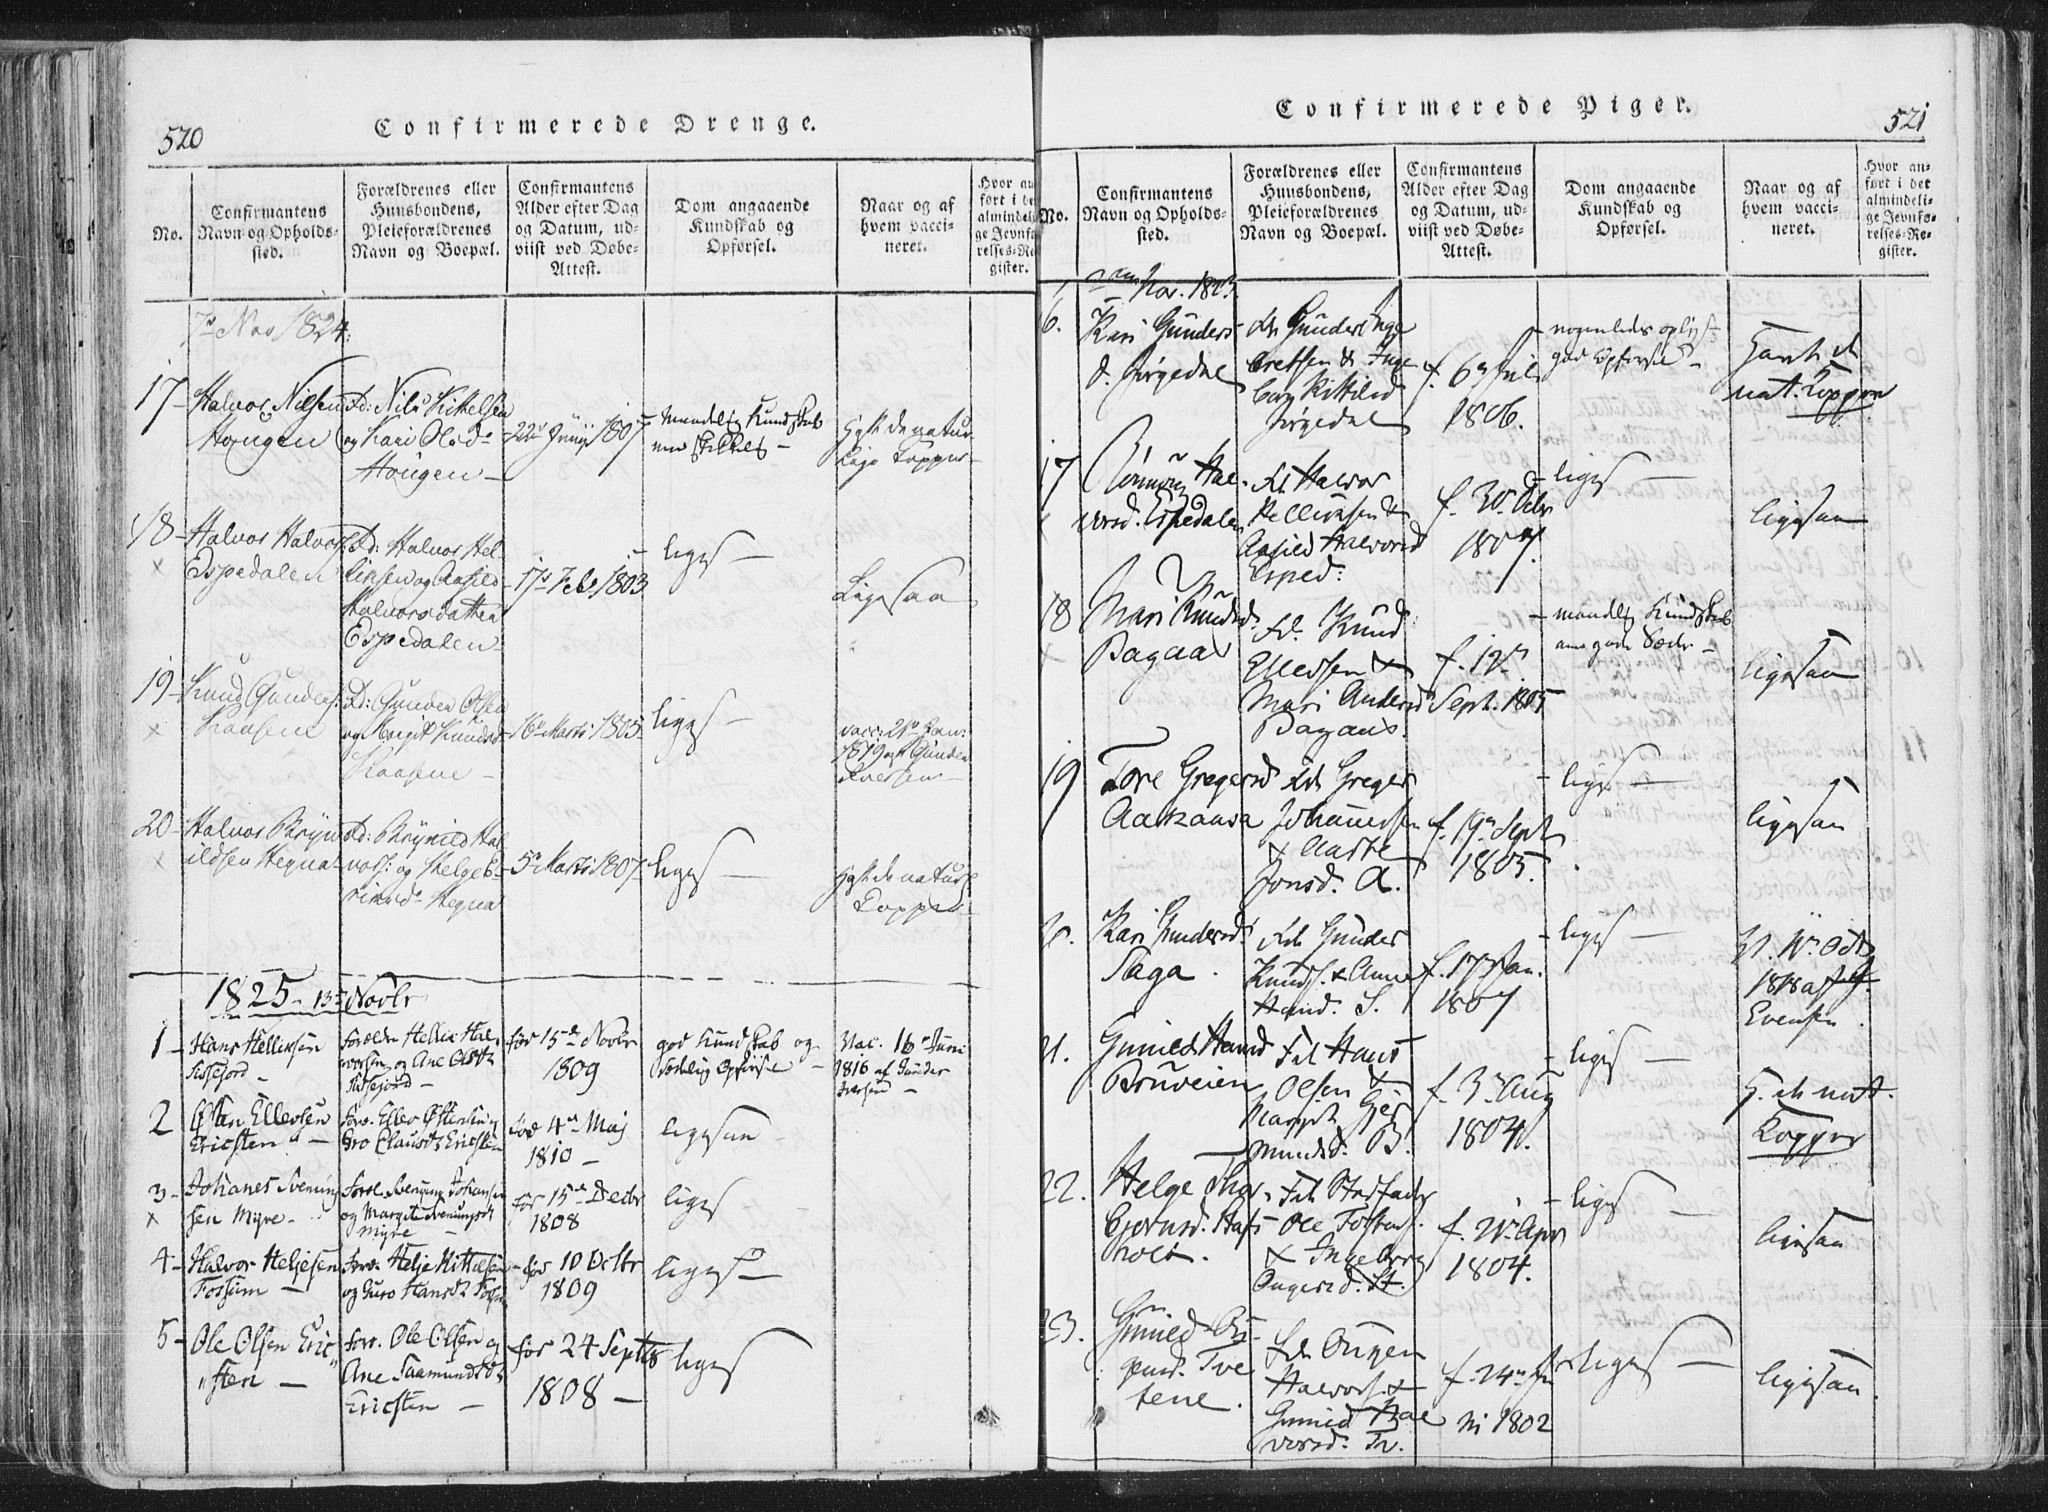 520
Confirmerede Drenge.
No.
Confirmantens
Navn og Opholds-
sted.
Forældrenes eller
Huusbondens,
Pleieforældrenes
Navn og Boepæl.
Confirmantens
Alder efter Dag
og Datum, ud-
viist ved Døbe-
Attest.
Dom angaaende
Kundskab og
Opførsel.
Naar og af
hvem vacci-
neret.
Hvor an
ført i de
almindeli
ge Jevnfø
relses-Re
gister.
7de Nov 1824.
17 - Halvor Nielsen
Hougen
Fd: Nils Kittelsen
og Kari Olsd.
Hougen -
22 Juny 1807
maadelig Kundskab
havt de natur-
lige Kopper -
18 - Halvor Halvors.
Espedalen
Fd: Halvor Hel-
liksen og Aasild
Halvorsdatter
Espedalen -
17 Feb. 1803
liges -
Ligesaa
19 - Knud Gunders.
Kaasene
Fd: Gunder Olsen
og Birgit Knudsd.
Kaasene -
16 Marts 1805 -
liges -
vacc: 21 Jan:
1819 af Gunder
Iversen -
20 - Halvor Bryn-
ildsen Hegna
Fd: Brynild Hal-
vors. og Helge
Hegna
5 Marts 1807 -
liges -
havt de naturl.
Kopper -
1825 - 13de Novbr
1 - Hans Helliksen
Tissejord -
Forældre Hellik Hal-
vorsen og Ane Olsdtr
Tissejord -
før 15de Novbr
1809
god Kundskab og
sædelig Opførsel -
Vac. 16 Juni
1816 af Gunder
Iversen -
2 Østen Ellevsen
Ericsten -
Forr. Ellev Østensen og
Gro Clausdtr Ericsten
fød 4de Maj
1810 -
ligesaa
3 - Johanes Svenung
sen Myre -
Foræl Svenung Johansen
og Margit Svenungsdtr
Myre -
før 15de Decbr
1808
liges
4 - Halvor Heljesen
Fossum -
Forr. Helje Kittelsen
og Guro Hansdtr Fossum
- fød 10 Octbr
1809
liges -
5 - Ole Olsen Eric
"sten -
Forr. Ole Olsen og
Ane Saamundsdtr
Ericsten -
før 24 Septbr
1808 -
liges
Confirmerede Piger.
521
No.
Confirmantens
Navn og Opholds-
sted.
Forældrenes eller
Huusbondens,
Pleieforældrenes
Navn og Boepæl.
Confirmantens
Alder efter Dag
og Datum, ud-
viist ved Døbe-
Attest.
Dom angaaende
Kundskab og
Opførsel.
Naar og af
hvem vacci-
neret.
Hvor an-
ført i det
almindeli-
ge Jevnfø-
relses-Re-
gister.
Nov. 1823.
6. Kari Gunders
d. Jørgedal
Fdr Gunder Inge
bretsen & Inge
borg Kittilsd
Jørgedal
f. 6 Juli
1806.
nogenledes oplyst
god Opførsel -
Havt de
nat. Kopper
17 Rønnoug Hal-
vorsd. Espedalen
Fdr Halvor
Helliksen &
Aasild Halvorsd
Esped:
f. 30 Octbr
1807.
- liges -
ligesaa
18 Mari Knudsd.
Bagaas
Fdr. Knud
Ellevsen &
Mari Andersd
Bagaas.
f. 12
Sept. 1805
- maadelig Kundskab
gode Sæder -
ligesaa
19 Tore Gregersd
Aakaasa
Fdr Greger
Johannessen
& Aaste
Jonsd. A.
f. 19 Sept
1805.
- liges -
ligesaa
20. Kari Gundersd.
Saga.
Fdr Gunder
Knuds. & Anne
Hansd. S.
f. 17 Jan.
1807
- liges -
1818 af G.
Evensen.
21. Gunild Hansd
Bruveien
Fdr Hans
Olsen &
Margit Gjer
mundsd. B.
f. 3 Aug
1804.
- liges -
H. de nat.
Kopper
22. Helge Thor-
bjørnsd. Stafs
holt.
Fdr Stedfader
Ole Tostens.
& Ingeborg
Ougensd. St.
f. 21 Apr
1804.
- liges -
ligesaa
23. Gunild Ou-
gensd. Tve
tene.
Fdr Ougen
Halvors. &
Gunild Hal
vorsd. Tv.
f. 24 Ju
ni 1802
liges -
ligesaa.